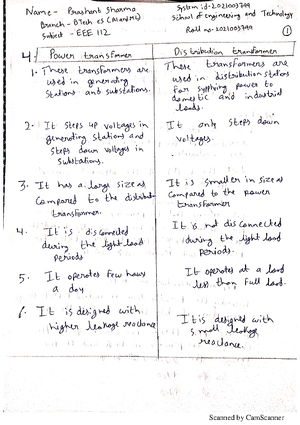 Name - Prashant Sharma
System id-2021003799
Branch - BTech CS (AI and ML)
School of Engineering and Technology
Subject - EEE 112
Roll no- 2021003799
1
4.
Power transformer
Distribution transformer
1. These transformers are
used in generating
stations and substations.
These transformers are
used in distribution stations
for supplying power to
domestic and industrial
loads.
2. It steps up voltages in
generating stations and
steps down voltages in
substations.
It only steps down
voltages.
3. It has a large size as
compared to the distribution
transformer.
It is smaller in size as
compared to the power
transformer
4. It is disconnected
during the light load
periods.
It is not disconnected
during the light load
periods.
5. It operates few hours
a day
It operates at a load
less than full load.
6. It is designed with
higher leakage reactance
It is designed with
small leakage
reactance.
Scanned by CamScanner